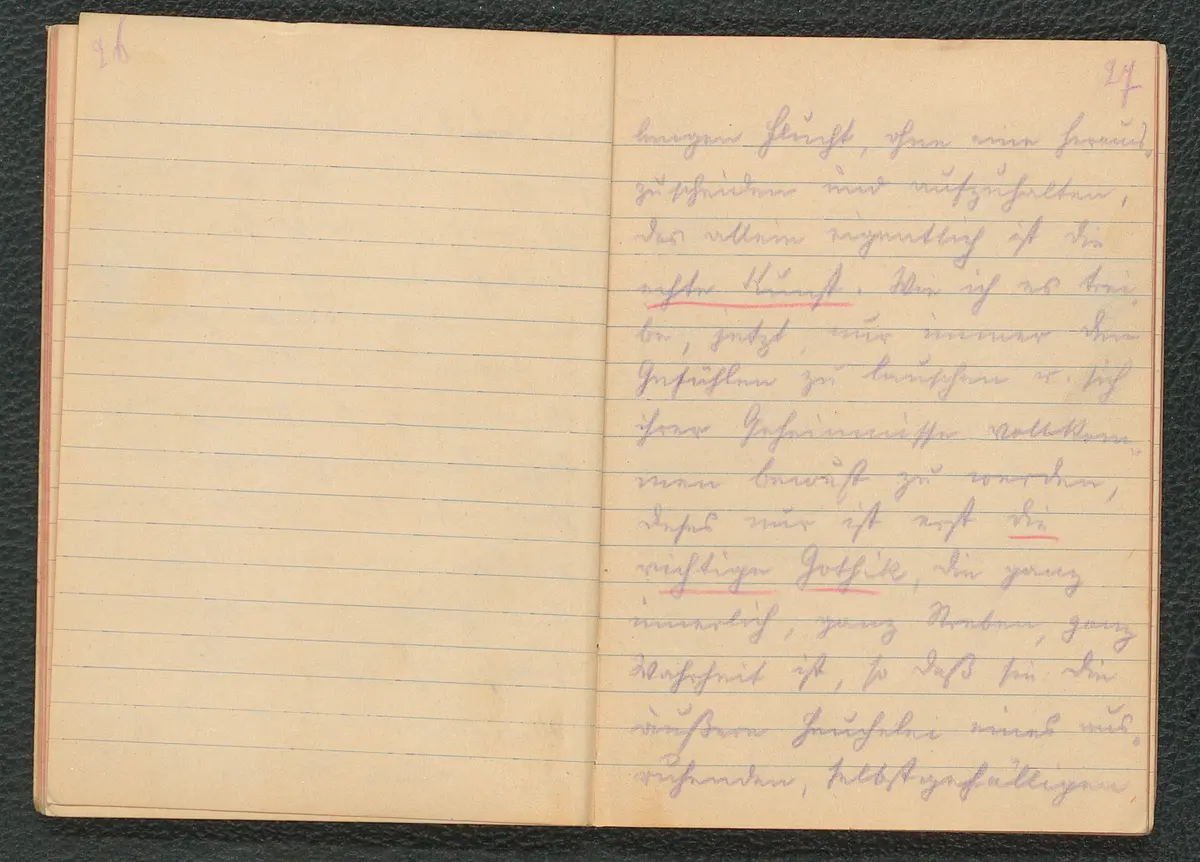 26
27
langen Flucht, ohne eine heraus-
zuscheiden und aufzuhalten,
das allein eigentlich ist die
echte Kunst. Wie ich es trei-
be, jetzt, nur immer den
Gefühlen zu lauschen u. sich
ihrer Geheimnisse vollkom-
men bewußt zu werden,
dieses nur ist erst die
richtige Gothik, die ganz
innerlich, ganz Streben, ganz
Wahrheit ist, so daß sie die
äußere Heuchelei eines aus-
ruhenden, selbstgefälligen